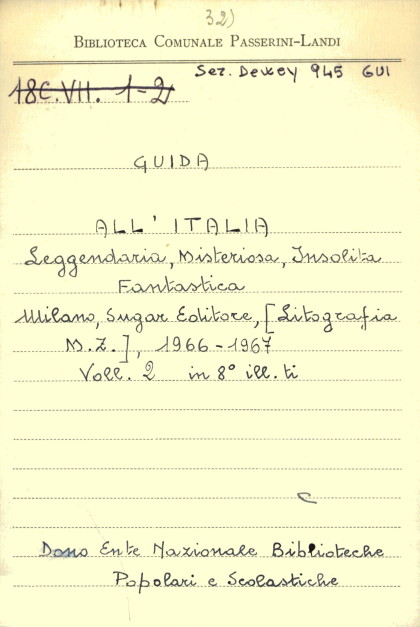 32)
BIBLIOTECA COMUNALE PASSERINI-LANDI
Sez. Dewey 945 GUI
18C.VII. 1-2
GUIDA
ALL' ITALIA
Leggendaria, Misteriosa, Insolita
Fantastica
Milano, Sugar Editore, [Litografia
M.Z.], 1966-1967
Voll. 2 in 8° ill.ti
C
Dono Ente Nazionale Biblioteche
Popolari e Scolastiche